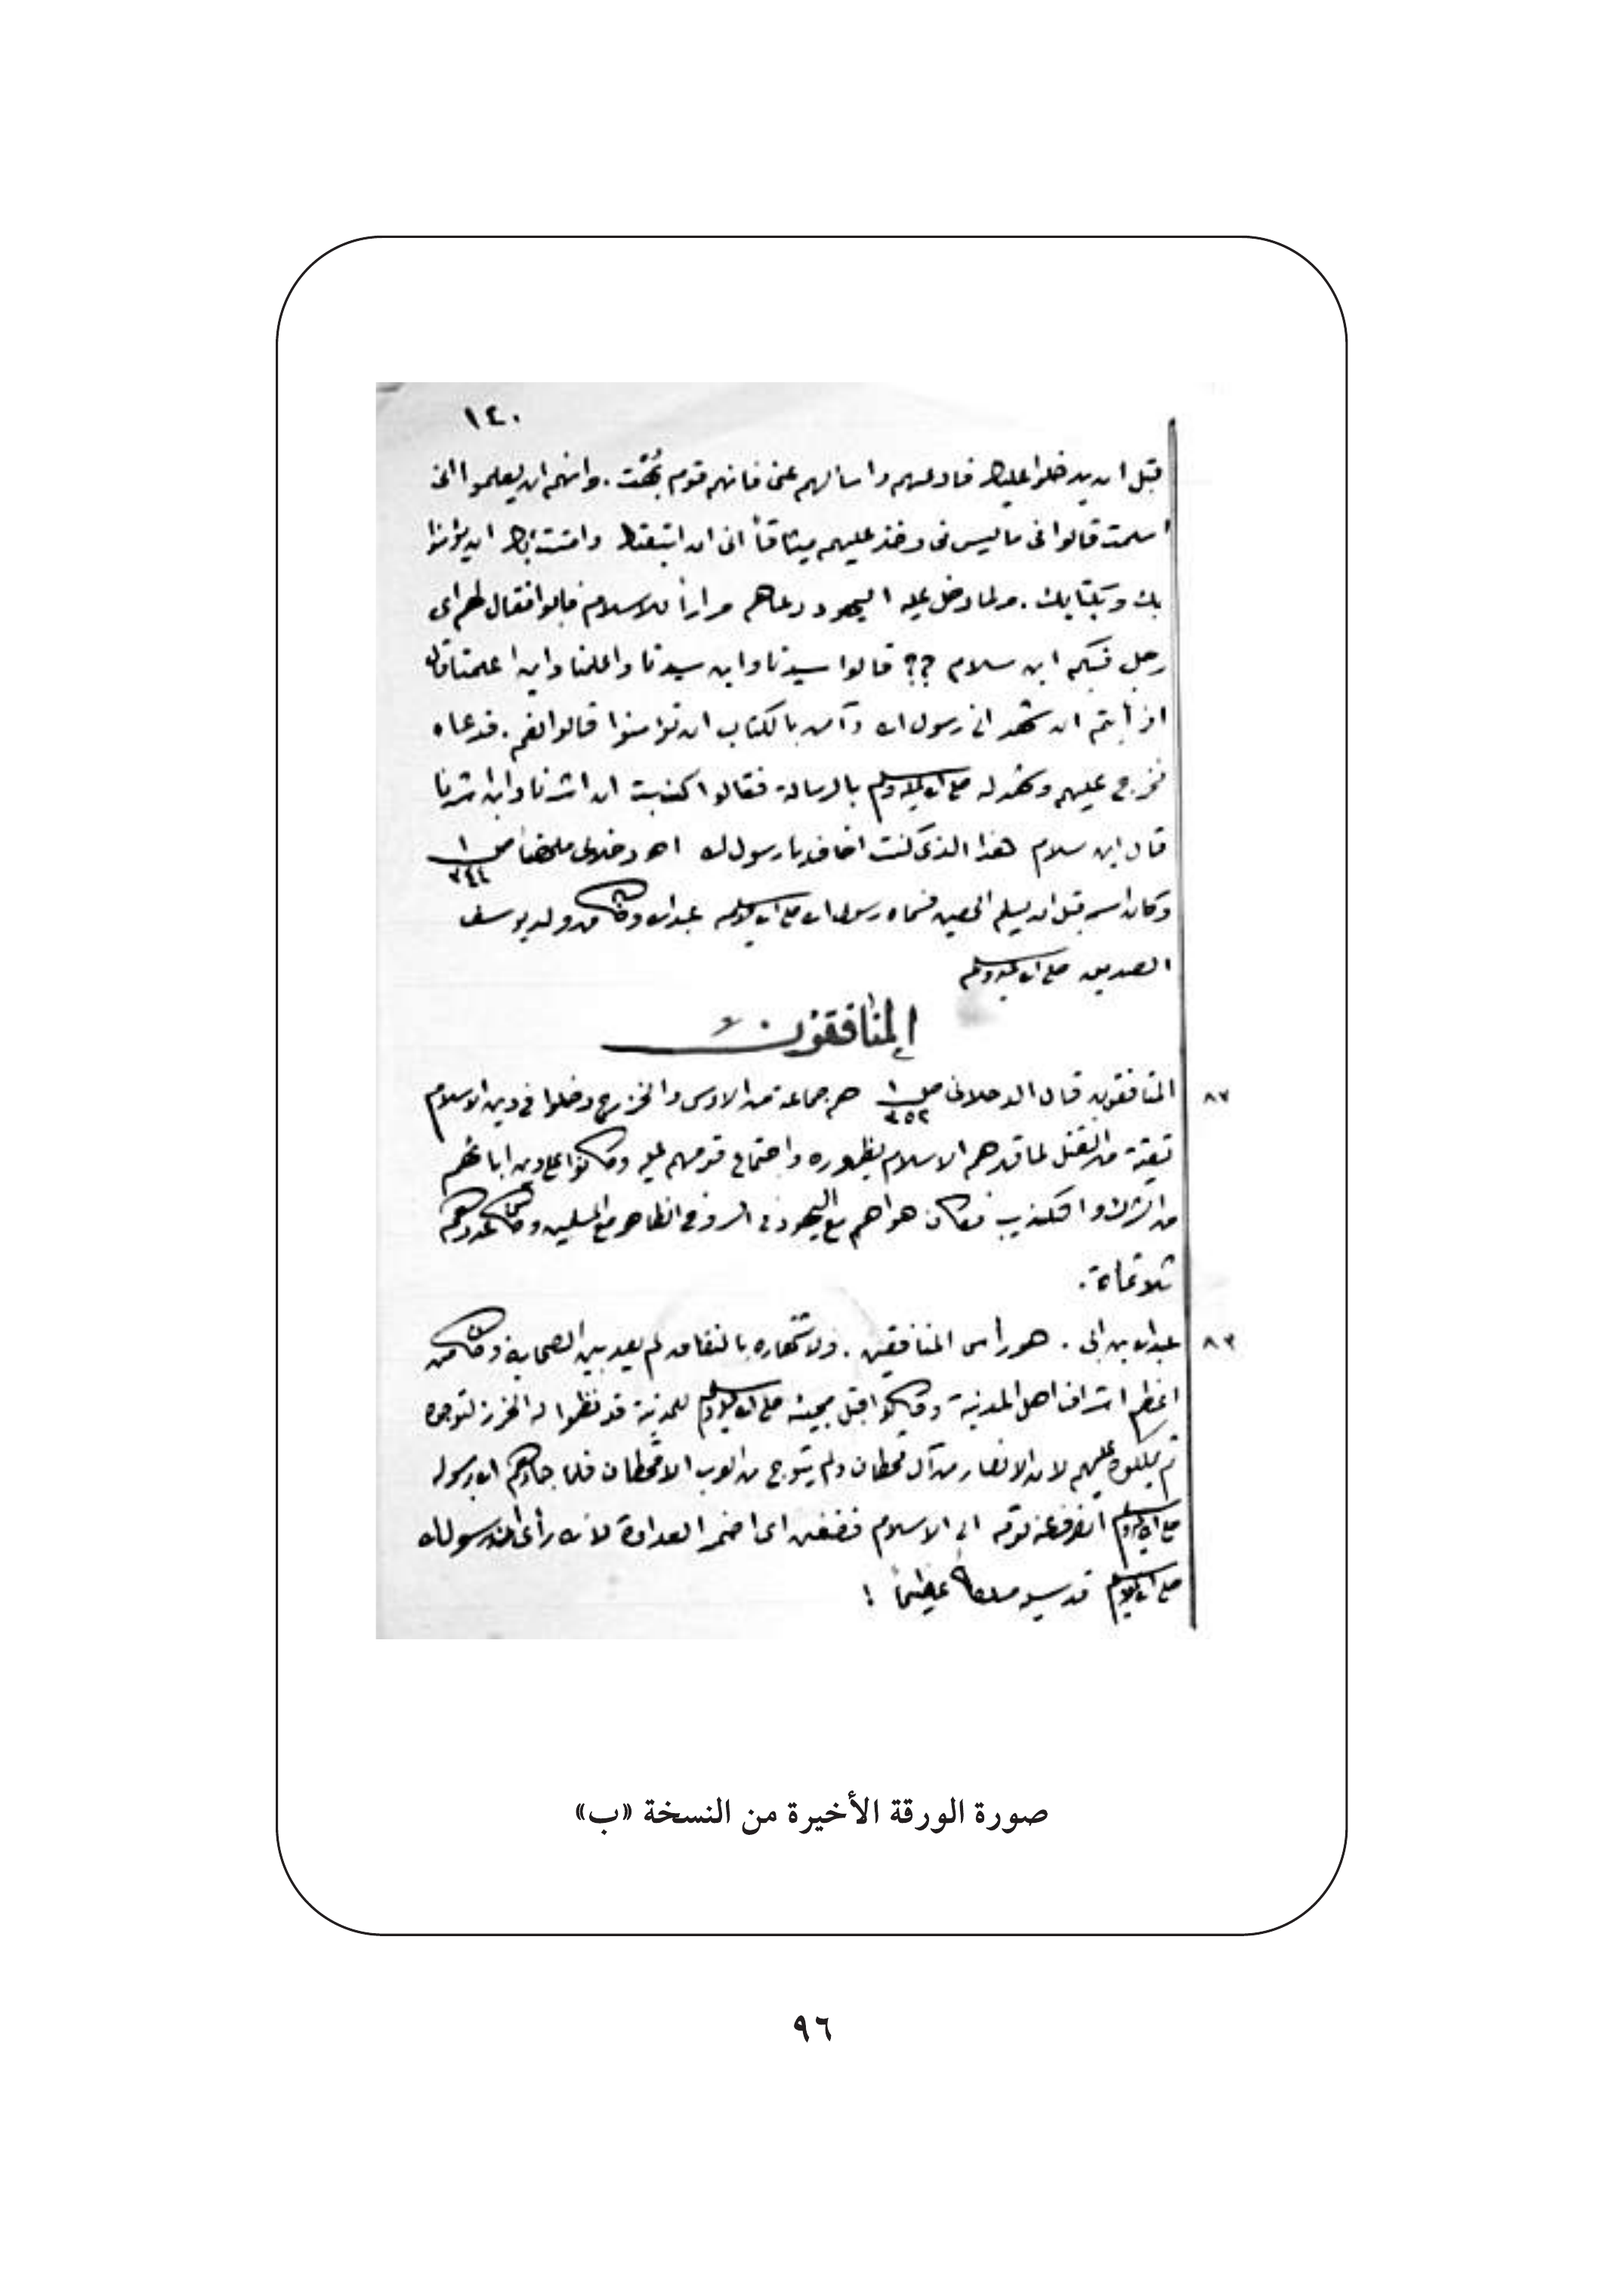 ١٤٠
قبل ان يدخلوا عليك فادعهم واسألهم عنى فانهم قوم بُهُت . وانهم ان يعلموا انى
اسلمت قالوا فى ما ليس فى وخذ عليهم ميثاقاً انى ان اتبعتك وامنت بك ان يؤمنوا
بك وبكتابك . ولما دخل عليه اليهود دعاهم مراراً للاسلام فابوا فقال لهم اى
رجل فيكم ابن سلام ؟؟ قالوا سيدنا وابن سيدنا واعلمنا وابن اعلمنا قال
ان شهد انى رسول الله وآمن بالكتاب ان تؤمنوا قالوا نعم . فدعاه
فخرج عليهم وشهد له صلى الله عليه وسلم بالرسالة فقالوا كذبت انت اشرنا وابن اشرنا
قال ابن سلام هذا الذى كنت اخاف يا رسول الله اه دحلانى ملخصا ص ١/٣٤٤
وكان اسمه قبل ان يسلم الحصين فسماه رسول الله صلى الله عليه وسلم عبد الله وكان من ولد يوسف
الصديق صلى الله عليه وسلم
المنافقون
٨٢ المنافقون قال الدحلانى ص ١/٣٥٢ هم جماعة من الاوس والخزرج دخلوا فى دين الاسلام
تقية من القتل لما قهرهم الاسلام بظهوره واجتماع قومهم عليه وكانوا على دين ابائهم
من الشرك والتكذيب فكان هواهم مع اليهود فى السر وفى الظاهر مع المسلمين وكان عددهم
ثلاثمائة .
٨٣ عبد الله بن ابى . هو رأس المنافقين . ولاشتهاره بالنفاق لم يعد بين الصحابة وكان من
اعظم اشراف اهل المدينة وكانوا قبل مجيئه صلى الله عليه وسلم للمدينة قد نظموا له الخرز ليتوجوه
ثم يملكوه عليهم لان الانصار من آل قحطان ولم يتوج من العرب الا قحطان فلما جاءهم الله برسوله
صلى الله عليه وسلم انصرف عنه قومه الى الاسلام فضغن اى اضمر العداوة لانه رأى ان رسول الله
صلى الله عليه وسلم قد سلبه ملكا عظيماً !
صورة الورقة الأخيرة من النسخة «ب»
٩٦